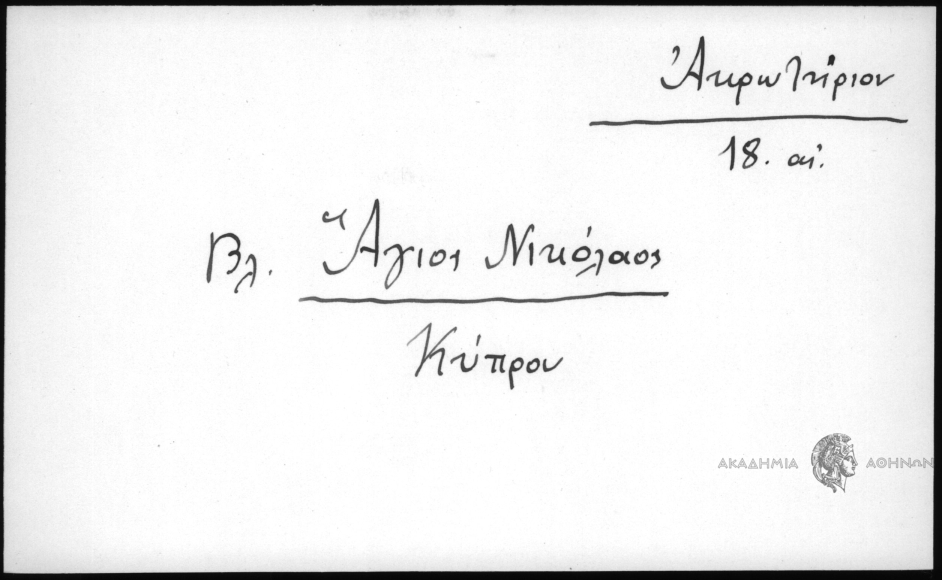 Ἀκρωτήριον
18. αἰ.
Βλ. Ἅγιος Νικόλαος
Κύπρου
ΑΚΑΔΗΜΙΑ ΑΘΗΝΩΝ